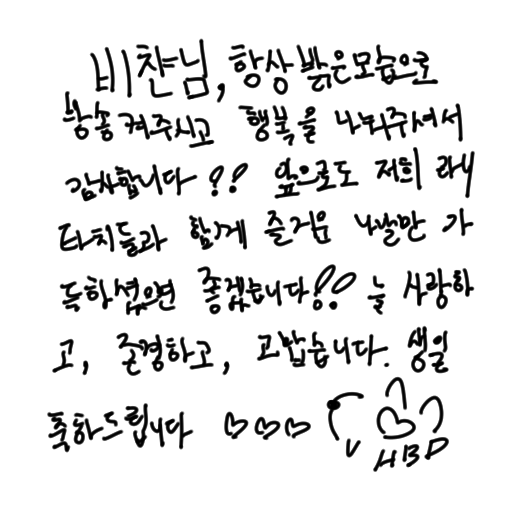 비챤님, 항상 밝은모습으로
방송 켜주시고 행복을 나눠주셔서
감사합니다!! 앞으로도 저희 라니
타치들과 함께 즐거운 나날만 가
득하셨으면 좋겠습니다!! 늘 사랑하
고, 존경하고, 고맙습니다. 생일
축하드립니다 ♡♡♡
HBD